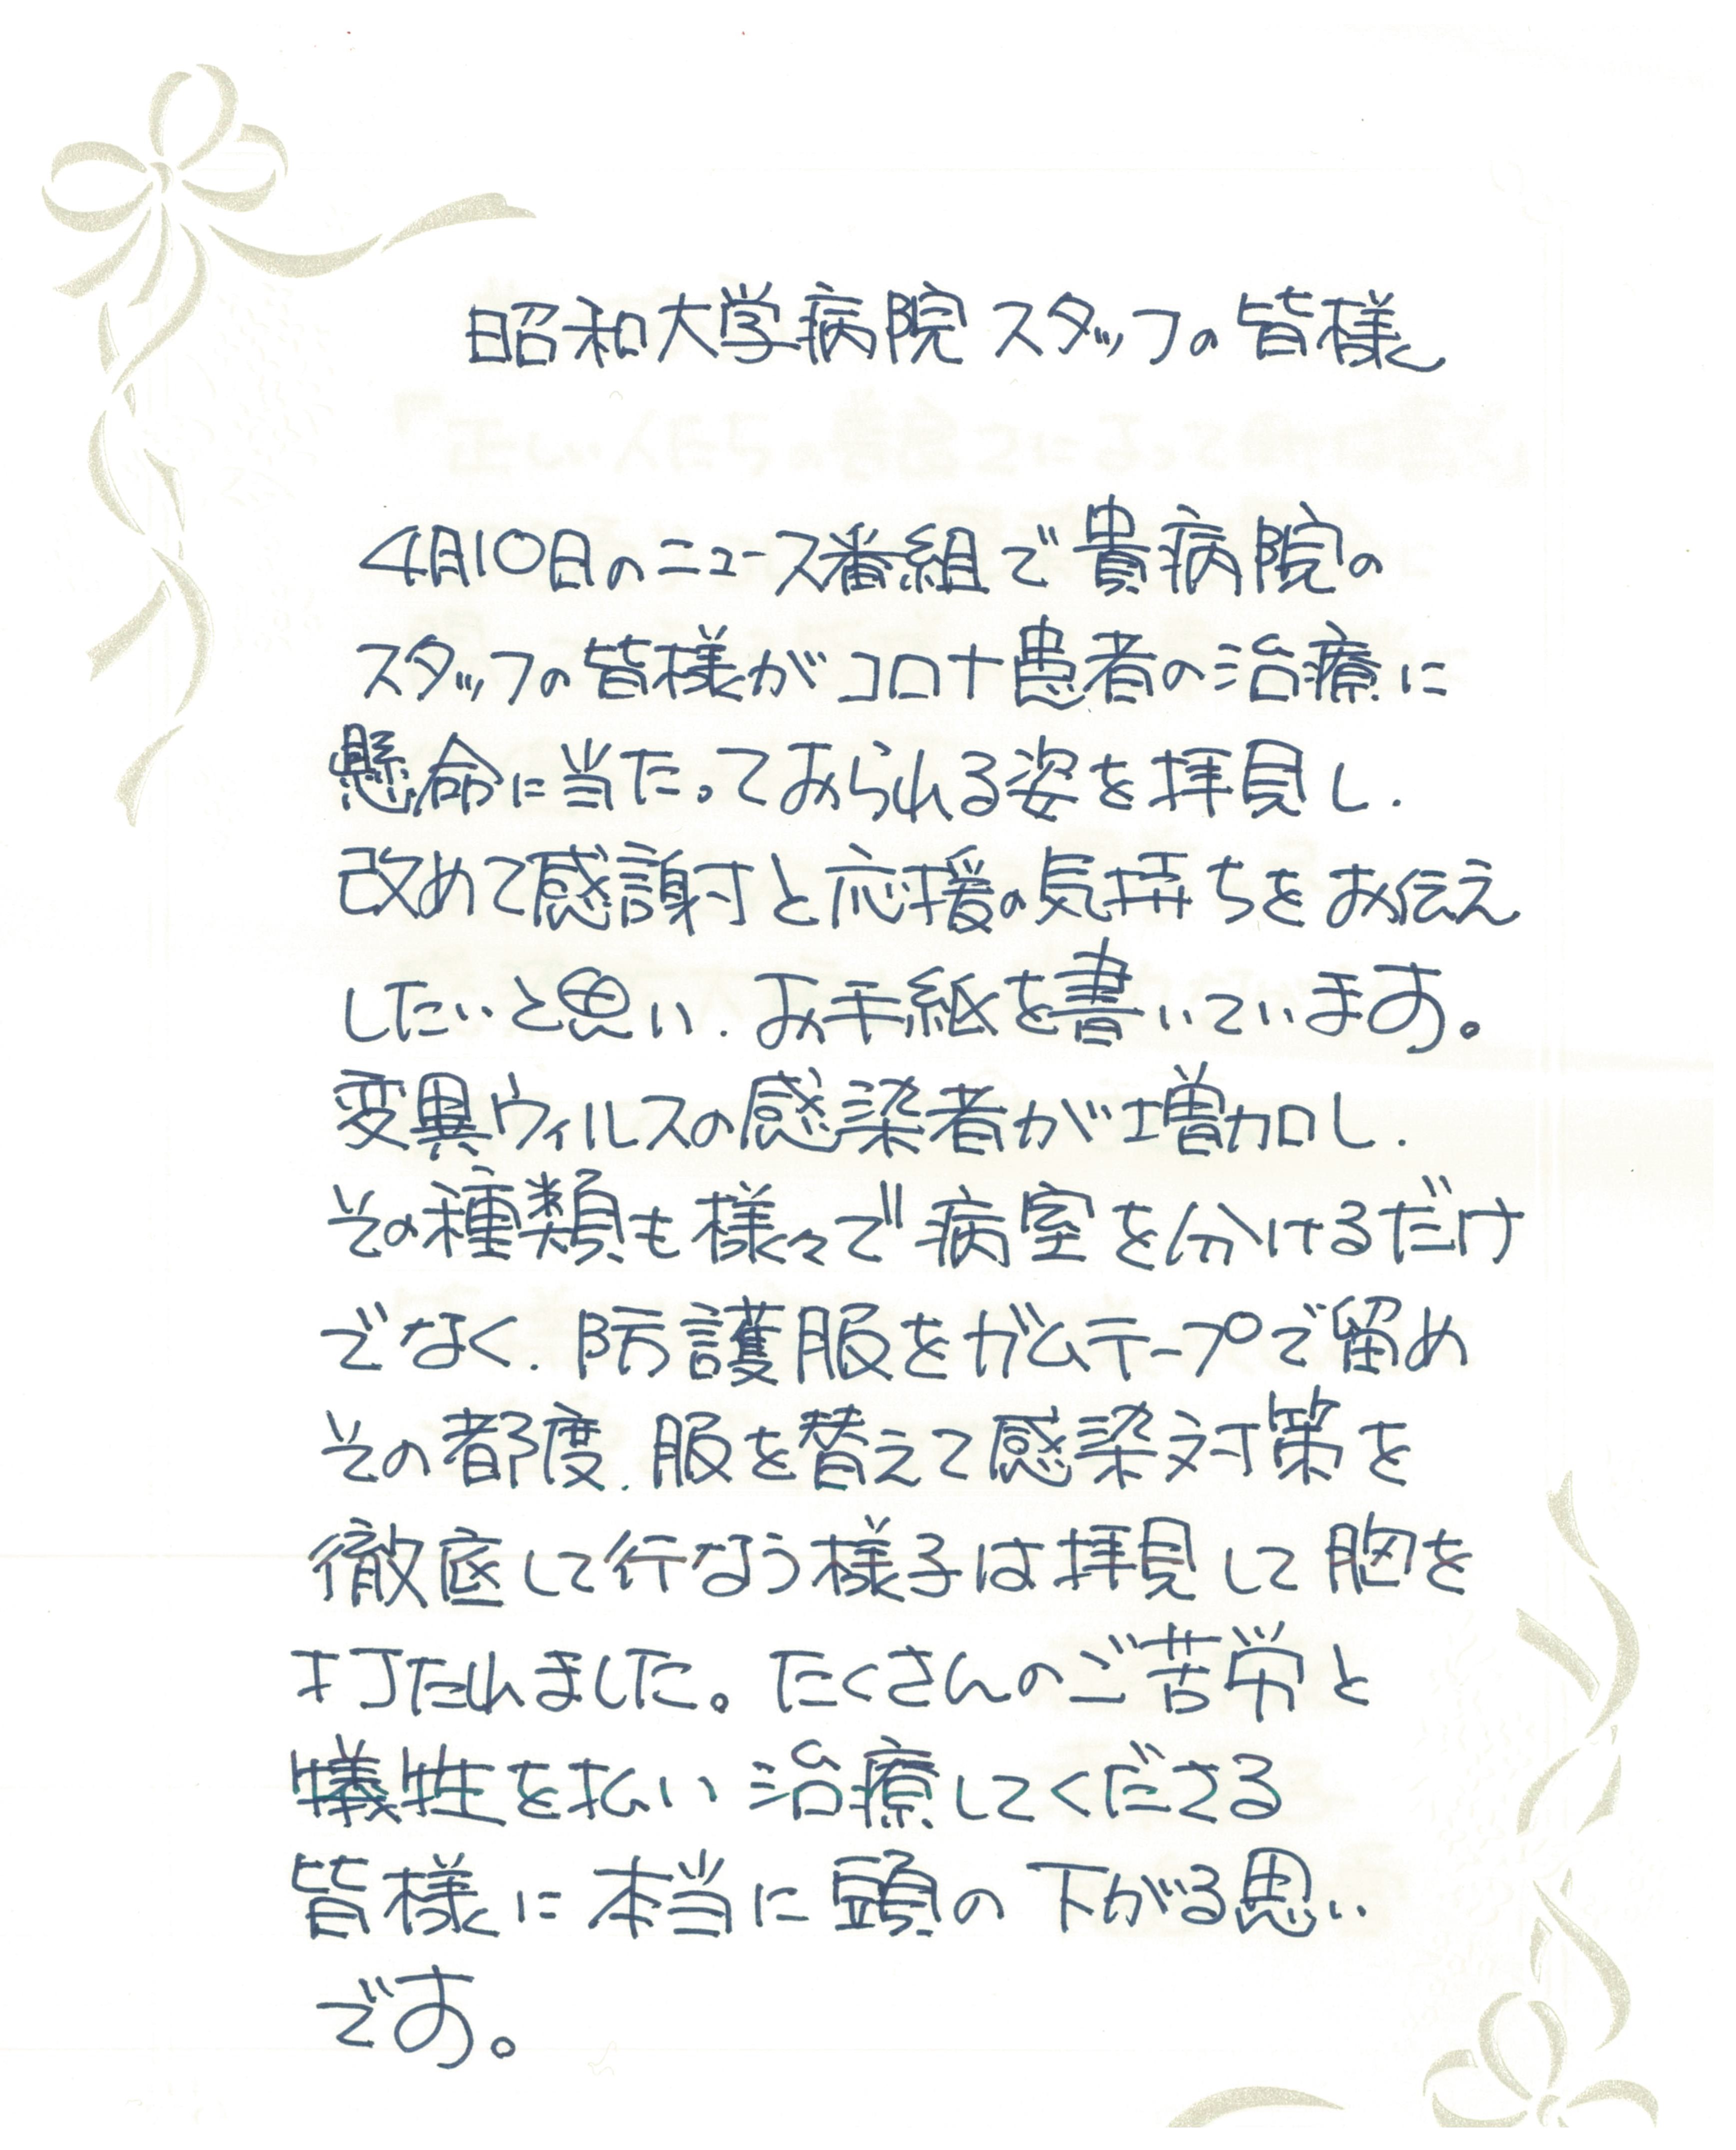 昭和大学病院 スタッフの皆様
4月10日のニュース番組で貴病院の
スタッフの皆様がコロナ患者の治療に
懸命に当たっておられる姿を拝見し.
改めて感謝と応援の気持ちをお伝え
したいと思い.お手紙を書いています。
変異ウィルスの感染者が増加し.
その種類も様々で病室を分けるだけ
でなく.防護服をガムテープで留め
その都度.服を替えて感染対策を
徹底して行なう様子は拝見して胸を
打たれました。たくさんのご苦労と
犠牲を払い治療してくださる
皆様に本当に頭の下がる思い
です。